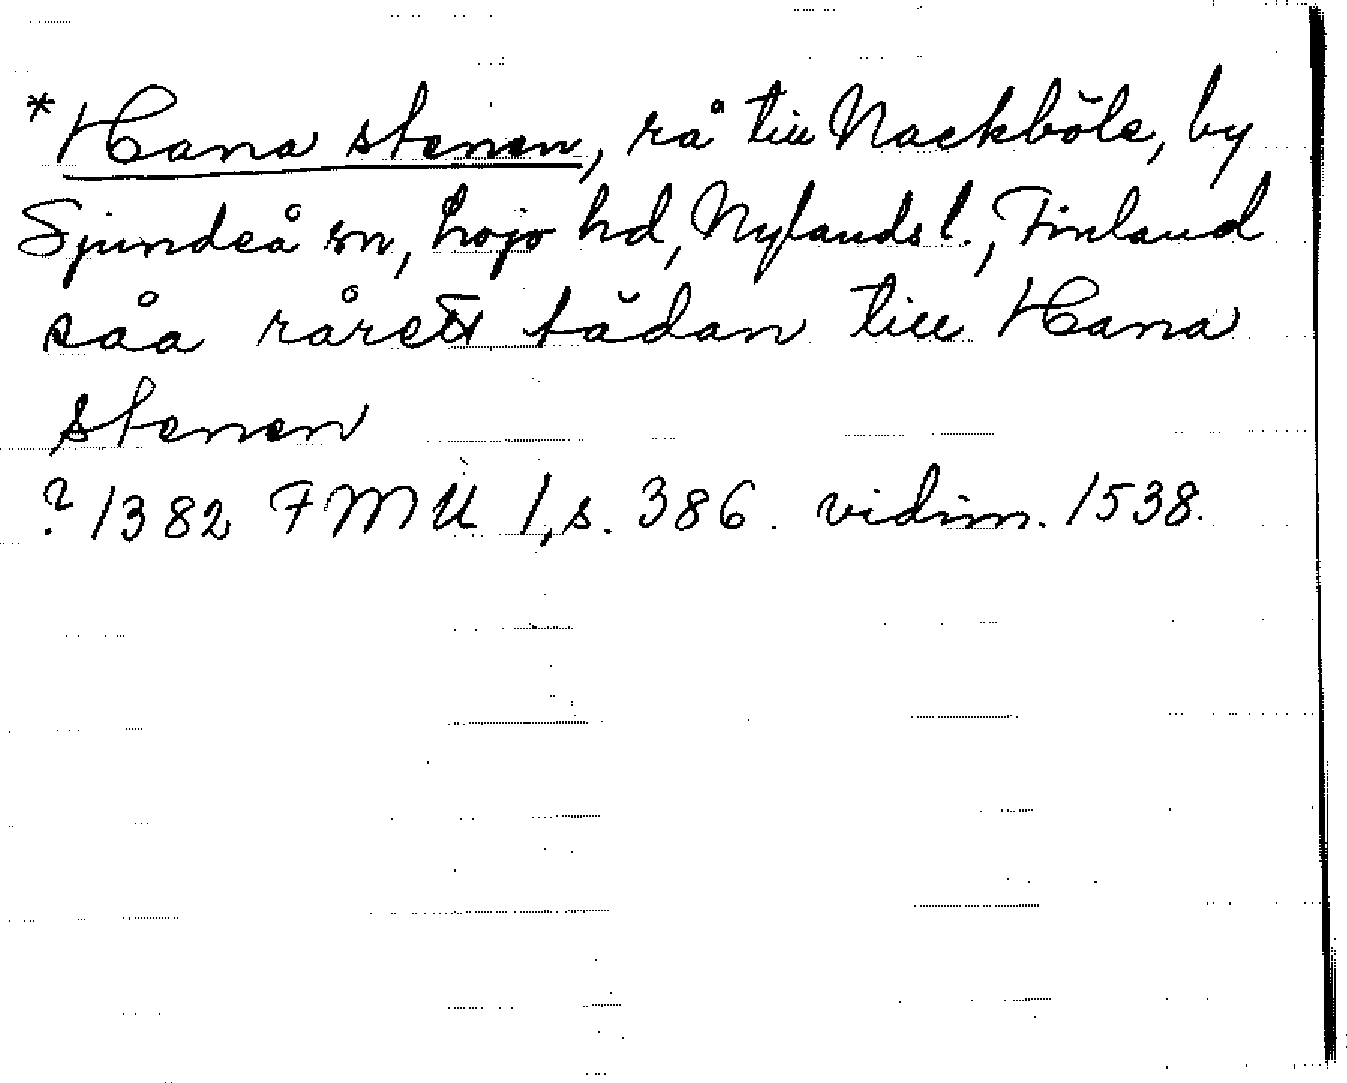 *Hana stenen, rå till Nackböle, by
Sjundeå sn, Lojo hd, Nylands l., Finland
såa rårett tådan till Hana
stenen
? 1382 FMU 1, s. 386. vidim. 1538.